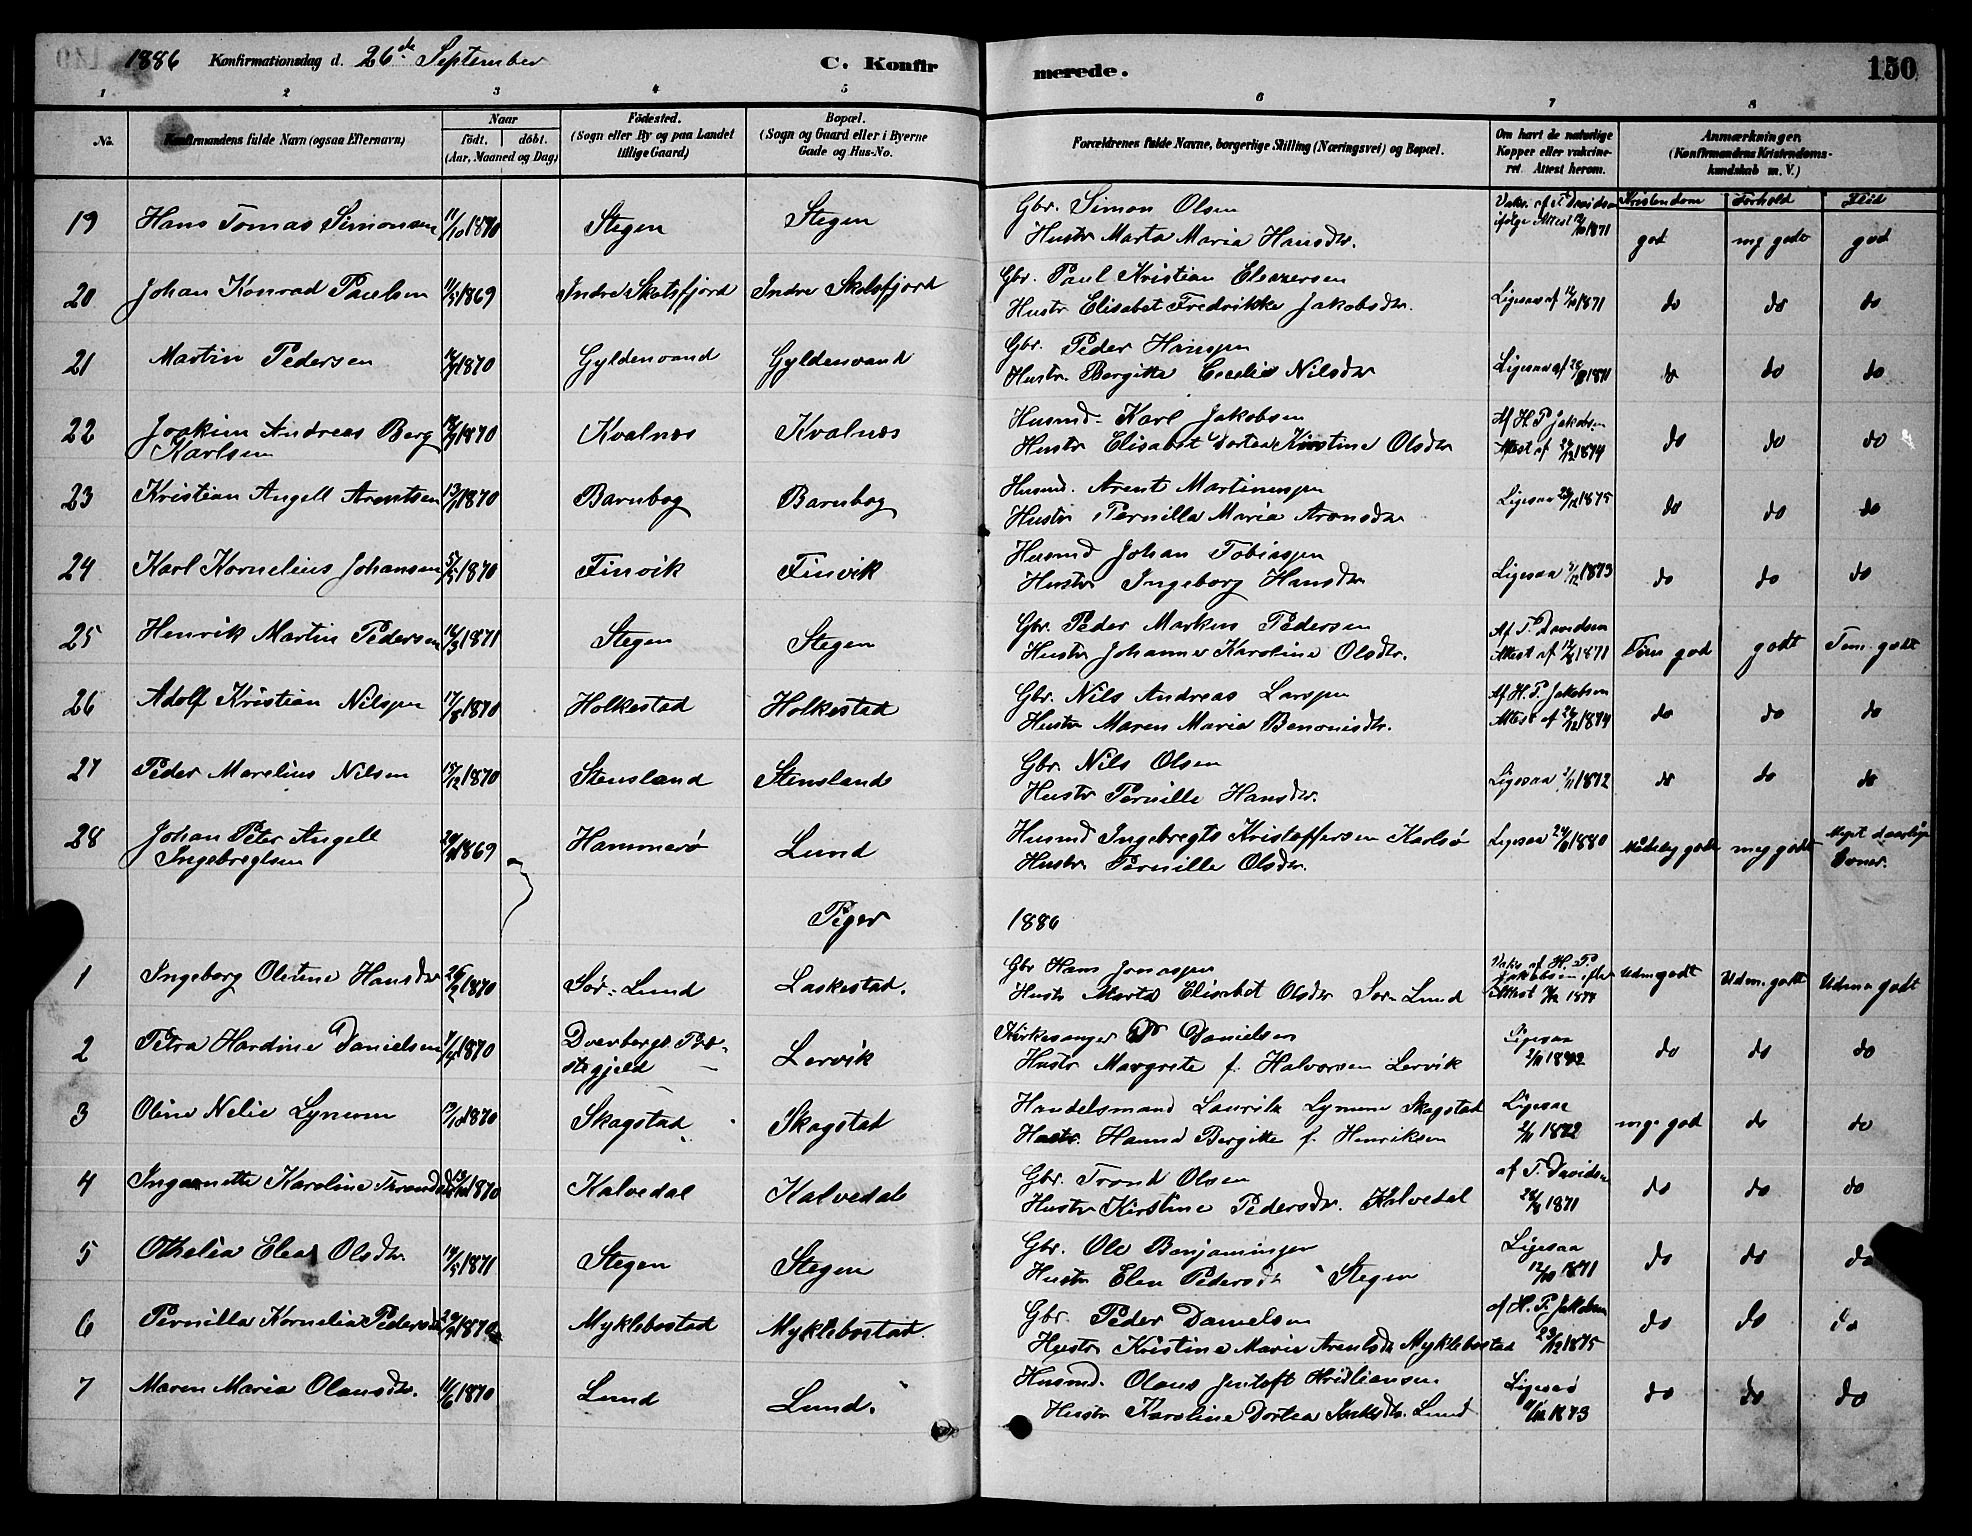 1886 Konfirmationsdag d. 26de September C. Konfir merede. 150
1 2 3 4 5 6 7 8
No. Konfirmandens fulde Navn (ogsaa Efternavn) Naar født. døbt. (Aar, Maaned og Dag) Fødested. (Sogn eller By og paa Landet tillige Gaard) Bopæl. (Sogn og Gaard eller i Byerne Gade og Hus-No. Forældrenes fulde Navne, borgerlige Stilling (Næringsvei) og Bopæl. Om havt de naturlige Kopper eller vakcineret. Attest herom. Anmærkninger. (Konfirmandens Kristendomskundskab m. V.)
Kristendom Forhold Flid
19 Hans Tomas Simonsen 11/10 1870 Stegen Stegen Gbr. Simon Olsen Vakc. af T Davidsen
Hustr Marta Maria Hansdtr. ifølge Attest 1871 god mg godt god
20 Johan Konrad Paulsen 1869 Indre Skotsfjord Indre Skotsfjord Gbr. Paul Kristian Eleazersen
Hustr Elisabet Fredrikke Jakobsdtr. Ligesaa af 1871 do do do
21 Martin Pedersen 1870 Gyldenvand Gyldenvand Gbr. Peder Hanssen
Hustr. Bergitte Cecelia Nilsdtr Ligesaa af 1871 do do do
22 Joakim Andreas Berg Karlsen 1870 Kvalnes Kvalnes Husmd. Karl Jakobsen Af H. P. Jakobsen
Hustr Elisabet Dortea Kirstine Olsdtr Attest af 1874 do do do
23 Kristian Angell Arentsen 1870 Barnbog Barnbog Husmd. Arent Martinussen
Hustr Pernilla Maria Aronsdtr Ligesaa 1875 do do do
24 Karl Kornelius Johansen 5/5 1870 Finvik Finvik Husmd Johan Tobiassen
Hustr Ingeborg Hansdtr Ligesaa 1873 do do do
25 Henrik Martin Pedersen 16/3 1871 Stegen Stegen Gbr. Peder Markus Pedersen Af T. Davidsen
Hustr Johanne Karoline Olsdtr. Attest af 1871 Tem god godt Tem. godt
26 Adolf Kristian Nilssen 17/8 1870 Holkestad Holkestad Gbr. Nils Andreas Larssen Af H. P. Jakobsen
Hustr Maren Maria Benonisdtr. Attest af 1874 do do do
27 Peder Marelius Nilsen 15/12 1870 Stensland Stenslands Gbr. Nils Olsen
Hustr Pernille Hansdtr. Ligesaa 1872 do do do
28 Johan Peter Angell Ingebregtsen 1869 Hammerø Lund Husmd Ingebregts Kristoffersen Karlsø
Hustr Pernille Olsdtr. Ligesaa 1880 Mådelig godt meg godt Meget daarlige Evner.
Piger 1886
1 Ingeborg Oletine Hansdtr 26/2 1870 Sør-Lund Laskestad. Gbr Hans Jonassen Vakc af H. P. Jakobsen
Hustr Marta Elisabet Olsdtr Sør-Lund Attest 1874 Udm godt Udm. godt Udm godt
2 Petra Hardine Danielsen 1870 Dverbergs Præstegjeld Lervik Kirkesanger D Danielsen
Hustr Margrete f. Halvorsen Lervik Ligesaa do do do
3 Oline Nelie Lynum 1870 Skagstad Skagstad Handelsmand Lauritz Lynum Skagstad
Hustr. Hanna Bergitte f. Henriksen Ligesaa 1872 mg. god do do
4 Inganette Karoline 1870 Kalvedal Kalvedal Gbr. Trond Olsen af T. Davidsen
Hustr Kirstine Pedersdtr. Kalvedal 1871 do do do
5 Othelia Elea Olsdtr. 1871 Stegen Stegen Gbr. Ole Benjaminsen
Hustr Elen Pedersdtr Stegen Ligesaa 12/10 1871 do do do
6 Pernilla Kornelia Pedersdtr 1870 Myklebostad Myklebostad. Gbr. Peder Danielsen af H. P. Jakobsen
Hustr Kristine Marie Arentsdtr Myklebostad 23/12 1875 do do do
7 Maren Maria Olausdtr. 1870 Lund Lund. Husmd. Olaus Jentoft Kristiansen
Hustr Karoline Dortea Lund Ligesaa 1873 do do do